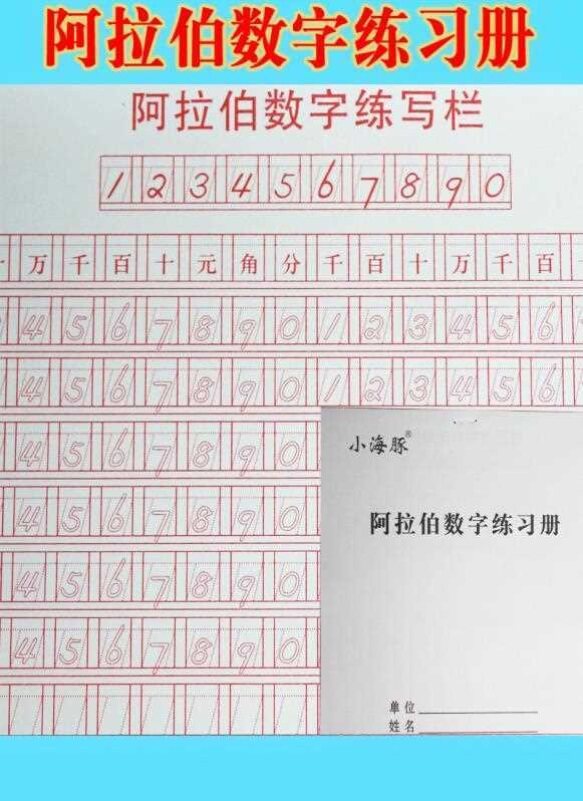 阿拉伯数字练习册
阿拉伯数字练写栏
1 2 3 4 5 6 7 8 9 0
万 千 百 十 元 角 分 千 百 十 万 千 百
4 5 6 7 8 9 0 1 2 3 4 5 6
4 5 6 7 8 9 0 1 2 3 4 5 6
4 5 6 7 8 9 0
4 5 6 7 8 9 0
4 5 6 7 8 9 0
4 5 6 7 8 9 0
小海豚®
阿拉伯数字练习册
单位
姓名